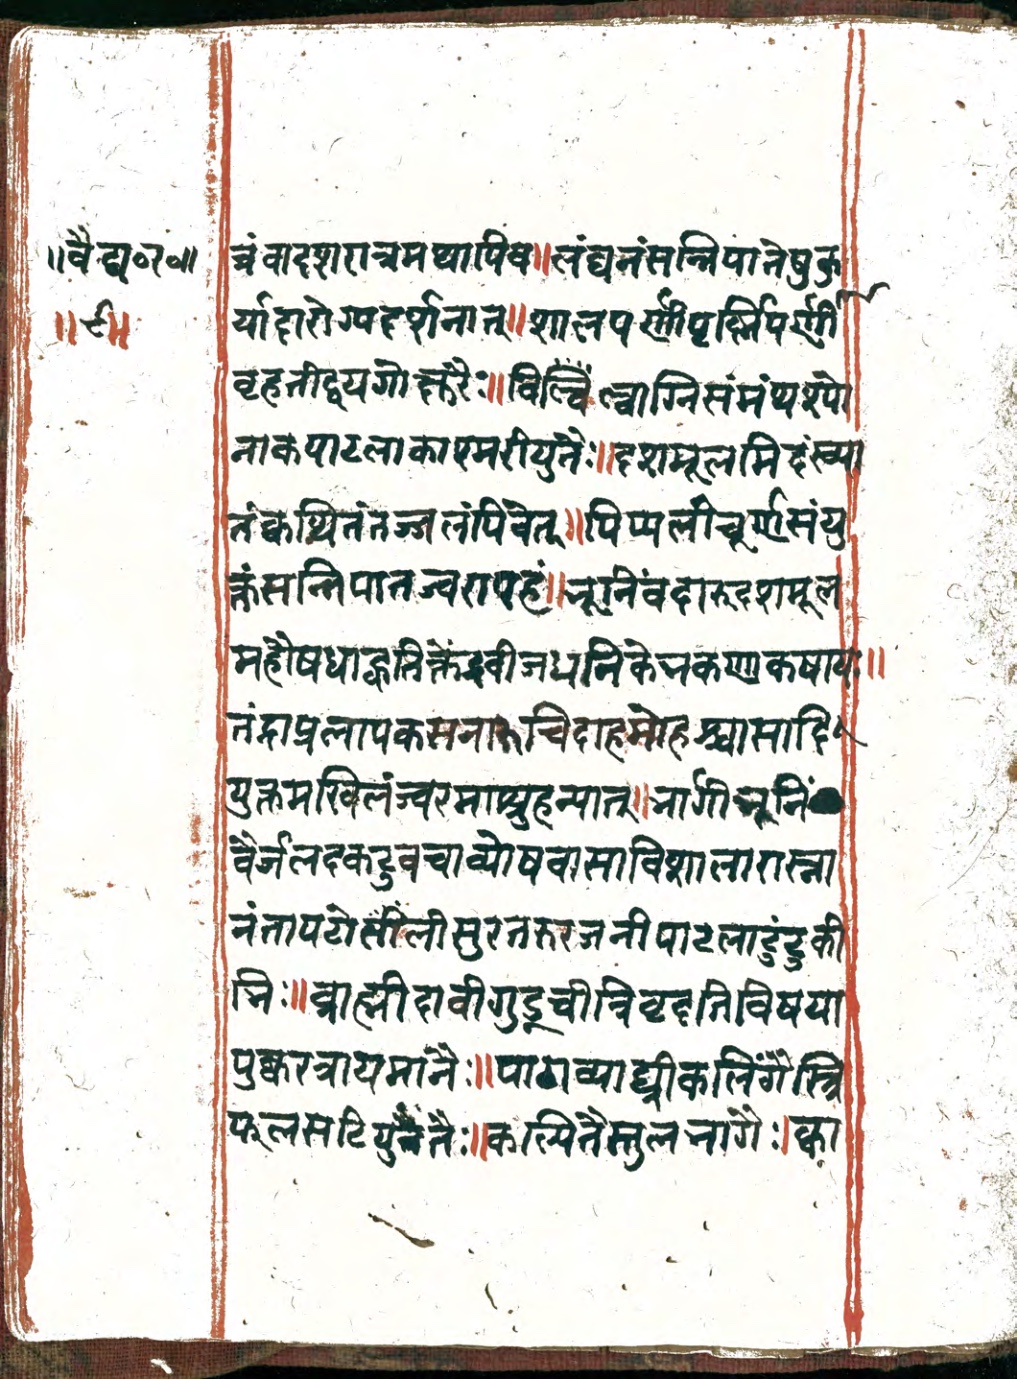 ॥वैद्य०र०॥
॥९॥
त्रं वादशरात्रमथापिवा॥लंघनंसन्निपातेषुकु
र्यादारोग्यदर्शनात्॥शालपर्णीपृर्श्निपर्णी
वृहतीद्वयगोक्षुरैः॥विल्वाग्निसंमंथश्यो
नाकपाटलाकाश्मरीयुतैः॥दशमूलमिदंख्या
तंक्वथितंतज्जलंपिवेत्॥पिप्पलीचूर्णसंयु
क्तंसन्निपातज्वरापहं॥भूनिंवदारुदशमूल
महौषधाद्वतिक्तेंद्रवीजधनिकेभकणाकषायः॥
तंद्राप्रलापकसनारुचिदाहमोहश्वासादि
युक्तमखिलंज्वरमाश्रुहन्यात्॥भार्गीभूनिं
वैर्जलदकटुवचाव्योषवासाविशालारास्ना
नंतापटोलीसुरतरुरजनीपाटलाटुंटुकी
भिः॥ब्राह्मीदार्वीगुडूचीत्रिवृदतिविषया
पुष्करत्रायमानैः॥पाठाव्याघ्रीकलिंगैस्त्रि
फलसटियुतैः॥कल्पितैस्तुलभागैः।क्वा